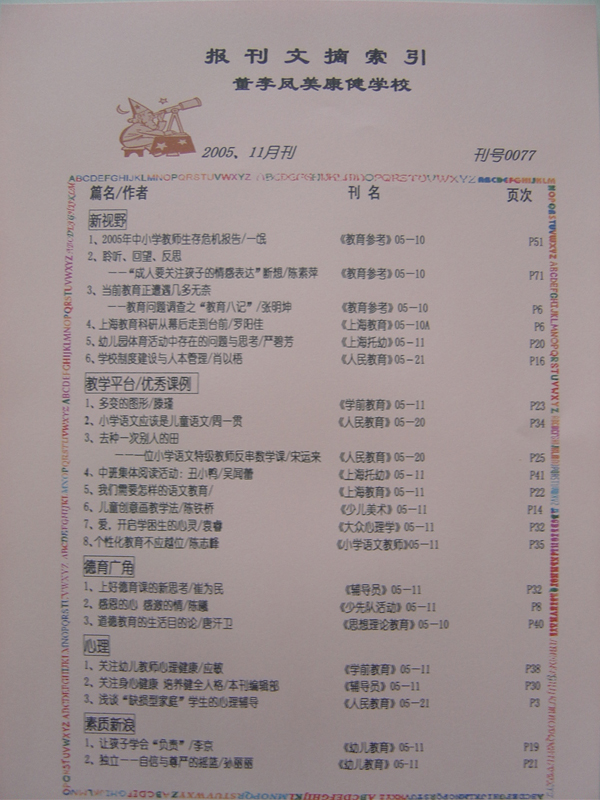 报刊文摘索引
董李凤美康健学校
2005、11月刊 刊号0077
ABCDEFGHIJKLMNOPQRSTUVWXYZ ABCDEFGHIJKLMNOPQRSTUVWXYZ ABCDEFGHIJKLM
篇名/作者 刊 名 页次
新视野
1、2005年中小学教师生存危机报告/一氓 《教育参考》05-10 P51
2、聆听、回望、反思
--“成人要关注孩子的情感表达”断想/陈素萍 《教育参考》05-10 P71
3、当前教育正遭遇几多无奈
--教育问题调查之“教育八记”/张明坤 《教育参考》05-10 P6
4、上海教育科研从幕后走到台前/罗阳佳 《上海教育》05-10A P6
5、幼儿园体育活动中存在的问题与思考/严碧芳 《上海托幼》05-11 P20
6、学校制度建设与人本管理/肖以梧 《人民教育》05-21 P16
教学平台/优秀课例
1、多变的图形/滕瑾 《学前教育》05-11 P23
2、小学语文应该是儿童语文/周一贯 《人民教育》05-20 P34
3、去种一次别人的田
---一位小学语文特级教师反串数学课/宋运来 《人民教育》05-20 P25
4、中班集体阅读活动：丑小鸭/吴闻蕾 《上海托幼》05-11 P41
5、我们需要怎样的语文教育/ 《上海教育》05-11 P22
6、儿童创意画教学法/陈铁桥 《少儿美术》05-11 P14
7、爱，开启学困生的心灵/袁睿 《大众心理学》05-11 P32
8、个性化教育不应越位/陈志峰 《小学语文教师》05-11 P35
德育广角
1、上好德育课的新思考/崔为民 《辅导员》05-11 P32
2、感恩的心 感激的情/陈曦 《少先队活动》05-11 P8
3、道德教育的生活目的论/唐汗卫 《思想理论教育》05-10 P40
心理
1、关注幼儿教师心理健康/应敏 《学前教育》05-11 P38
2、关注身心健康 培养健全人格/本刊编辑部 《辅导员》05-11 P30
3、浅谈“缺损型家庭”学生的心理辅导 《人民教育》05-21 P3
素质新浪
1、让孩子学会“负责”/李京 《幼儿教育》05-11 P19
2、独立--自信与尊严的摇篮/孙丽丽 《幼儿教育》05-11 P21